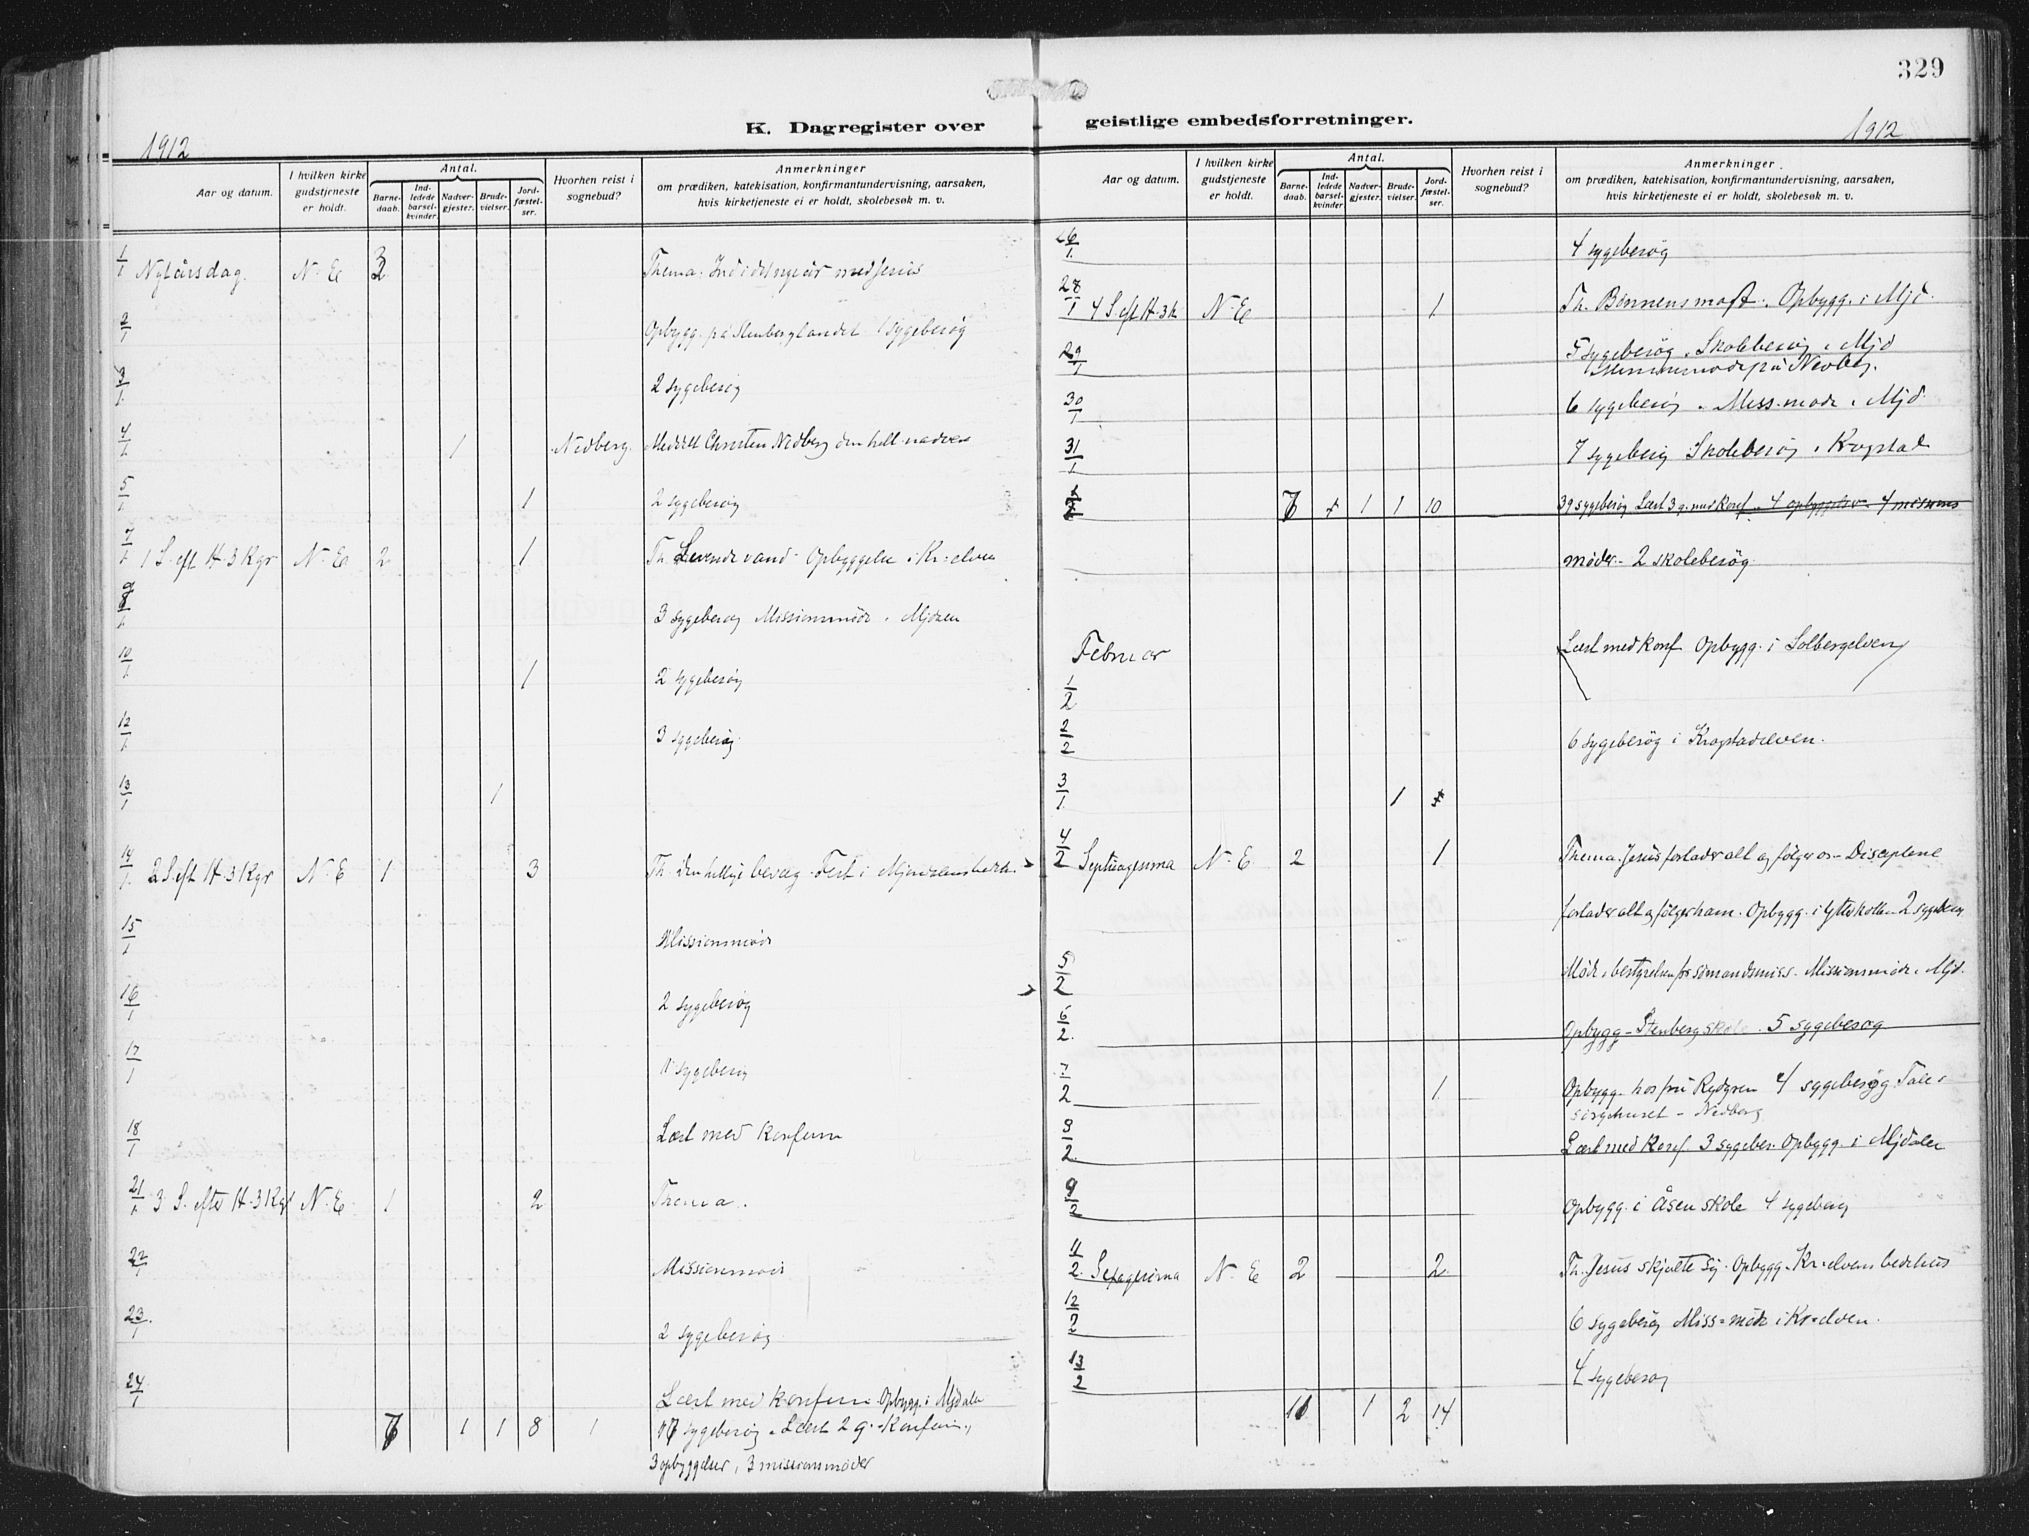 329
K. Dagregister over geistlige embedsforretninger.
1912
1912
Aar og datum.
I hvilken kirke gudstjeneste er holdt.
Antal.
Barnedaab.
Indledede barselkvinder
Nadvergjester.
Brudevielser.
Jordfæstelser.
Hvorhen reist i sognebud?
Anmerkninger
om prædiken, katekisation, konfirmantundervisning, aarsaken,
hvis kirketjeneste ei er holdt, skolebesøk m. v.
1/1 Nytårsdag. N. E 2 Thema. Ind i det nye år med Jesus
2/1 Opbygg. på Stenberglandet 1 sygebesøg
3/1 2 sygebesøg
4/1 1 Nedberg. Meddelt Christen Nedberg den hell. nadvere
5/1 1 2 sygebesøg
7/1 1 S. eft H. 3 Kgr N. E 2 1 Th. Levende vand. Opbyggelse i Kr=elven
9/1 3 sygebesøg Missionsmöde i Mjdalen
10/1 1 2 sygebesøg
12/1 3 sygebesøg.
13/1 1
14/1 2 S. eft H. 3 Kgr N. E 1 3 Th. Den hellige bevæg. Fest i
15/1 Missionsmöde
16/1 2 sygebesøg
17/1 sygebesøg
18/1 Læst med konferm
21/1 3 S. efter H. 3 Kgr N. E 1 2 Thema.
22/1 Missionsmöde
23/1 2 sygebesøg
24/1 Læst med konferm Opbygg. i Mjdalen
7 1 1 8 1 sygebesøg. Læst 2 g. Konferm,
3 opbyggelser, 3 missionsmøder
Aar og datum.
I hvilken kirke gudstjeneste er holdt.
Antal.
Barnedaab.
Indledede barselkvinder
Nadvergjester.
Brudevielser.
Jordfæstelser.
Hvorhen reist i sognebud?
Anmerkninger.
om prædiken, katekisation, konfirmantundervisning, aarsaken,
hvis kirketjeneste ei er holdt, skolebesøk m. v.
26/1 4 sygebesøg
28/1 4 S eft H. 3 k N. E 1 Th. Bønnens magt. Opbygg. i Mjd.
29/1 5 sygebesøg. Skolebesøg i Mjd
på Nedberg.
30/1 6 sygebesøg. Miss. möde i Mjd.
31/1 7 sygebesøg Skolebesøg i Krogstad
7 + 1 1 10 39 sygebesøg Læst 3 g. med Konf. 4 opbyggelser 4 missions
møder - 2 skolebesøg.
Februar
1/2 Læst med Konf Opbygg. i Solbergelven
2/2 6 sygebesøg i Krogstadelven.
3/1 1
4/2 Septuagesima N. E 2 1 Thema. Jesus forlader alt og følger os - Disciplene
forlader alt og følger ham. Opbygg. i Ytterkollen 2 sygebesøg
5/2 Möde i bestyrelsen for sömandsmiss. Missionsmöde i Mjd.
6/2 Opbygg - Stenberg skole. 5 sygebesøg
7/2 1 Opbygg. hos fru Rydgren 4 sygebesøg Tale i
sørgehuset - Nedberg
8/2 Læst med Konf. 3 sygebes. Opbygg. i Mjdalen
9/2 Opbygg. i Åsen skole 4 sygebesøg
11/2 Sexagesima N. E 2 2 Th. Jesus skjulte sig. Opbygg. Kr=elvens bedehus
12/2 6 sygebesøg Miss=möde i Kr=elven.
13/2 4 sygebesøg
11 1 2 14